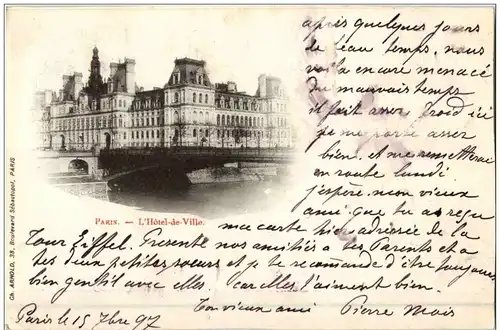 après quelques jours
de beau temps, nous
voilà encore menacé
du mauvais temps
il fait assez froid ici
je me porte assez
bien. et me remetterai
en route lundi
j'espère. mon vieux
ami que tu as reçu
PARIS. — L'Hôtel-de-Ville.
ma carte hier adressée de la
Tour Eiffel. Présente nos amitiés à tes Parents et a
tes deux petites soeurs et je te recommande d'être toujours
bien gentil avec elles. car elles t'aiment bien.
Ton vieux ami Pierre
Paris le 15 97
Ch. ARNOLD, 38, Boulevard Sébastopol, PARIS